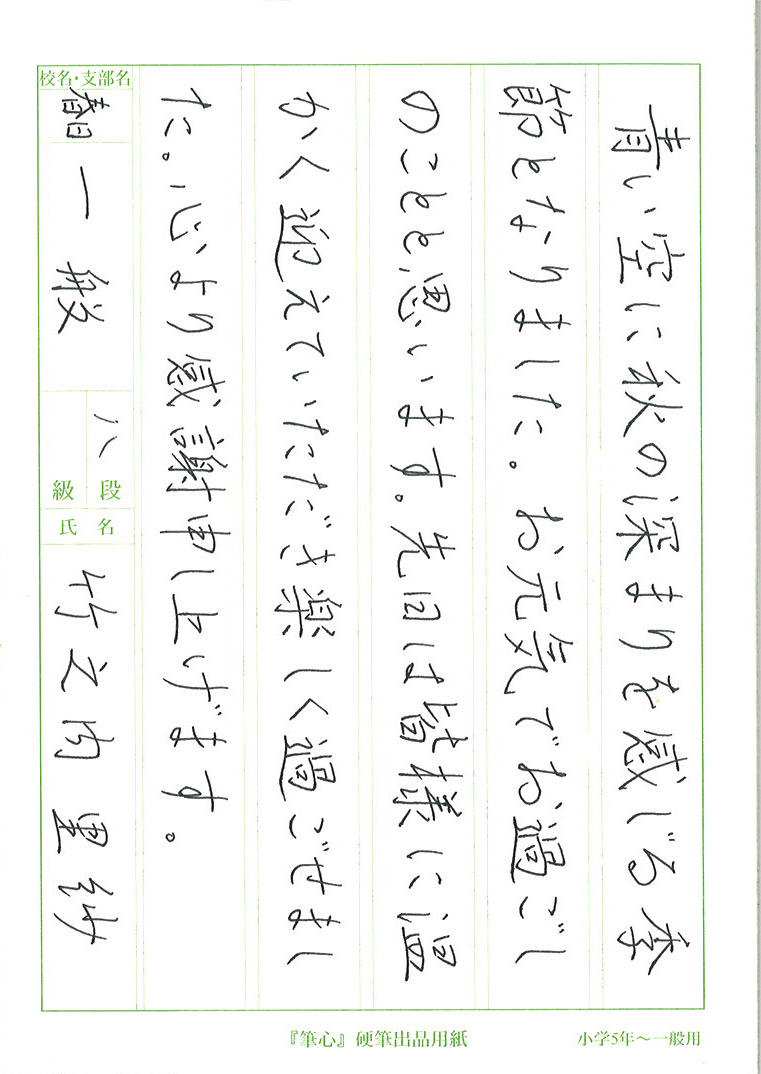 青い空に秋の深まりを感じる季
節となりました。お元気でお過ごし
のことと思います。先日は皆様に温
かく迎えていただき楽しく過ごせまし
た。心より感謝申し上げます。
校名・支部名
一般
八段
級
氏名
竹之内里紗
『筆心』硬筆出品用紙
小学5年〜一般用